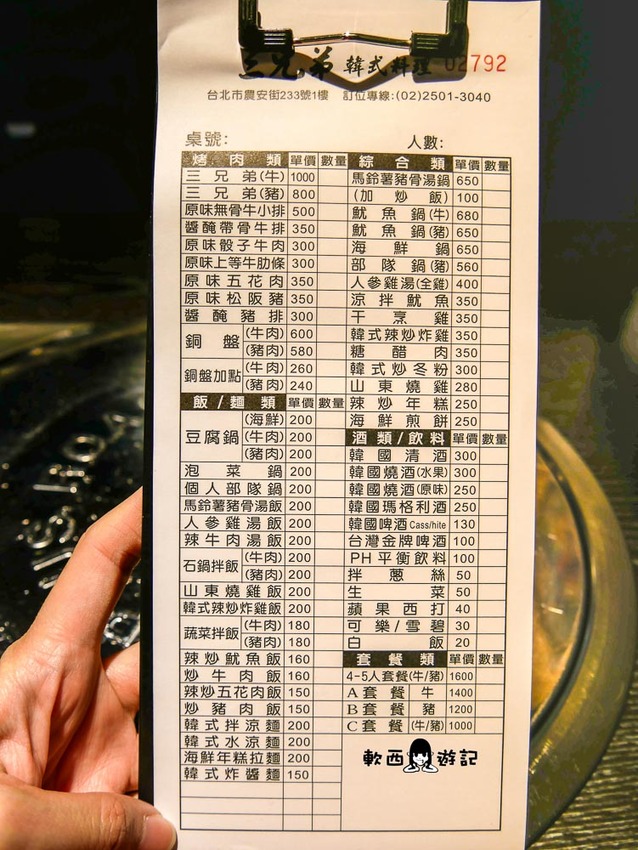 三兄弟 韓式料理 02792
台北市農安街233號1樓 訂位專線:(02)2501-3040
桌號: 人數:
烤肉類 單價 數量
三兄弟(牛) 1000
三兄弟(豬) 800
原味無骨牛小排 500
醬醃帶骨牛排 350
原味骰子牛肉 300
原味上等牛肋條 300
原味五花肉 350
原味松阪豬 350
醬醃豬排 300
銅盤 (牛肉) 600
(豬肉) 580
銅盤加點 (牛肉) 260
(豬肉) 240
飯/麵類 單價 數量
豆腐鍋 (海鮮) 200
(牛肉) 200
(豬肉) 200
泡菜鍋 200
個人部隊鍋 200
馬鈴薯豬骨湯飯 200
人參雞湯飯 200
辣牛肉湯飯 200
石鍋拌飯 (牛肉) 200
(豬肉) 200
山東燒雞飯 200
韓式辣炒炸雞飯 200
蔬菜拌飯 (牛肉) 180
(豬肉) 180
辣炒魷魚飯 160
炒牛肉飯 160
辣炒五花肉飯 150
炒豬肉飯 150
韓式拌涼麵 200
韓式水涼麵 200
海鮮年糕拉麵 200
韓式炸醬麵 150
綜合類 單價 數量
馬鈴薯豬骨湯鍋 650
(加炒飯) 100
魷魚鍋(牛) 680
魷魚鍋(豬) 650
海鮮鍋 650
部隊鍋(豬) 560
人參雞湯(全雞) 400
涼拌魷魚 350
干烹雞 350
韓式辣炒炸雞 350
糖醋肉 350
韓式炒冬粉 300
山東燒雞 280
辣炒年糕 250
海鮮煎餅 250
酒類/飲料 單價 數量
韓國清酒 300
韓國燒酒(水果) 300
韓國燒酒(原味) 250
韓國瑪格利酒 250
韓國啤酒Cass/hite 130
台灣金牌啤酒 100
PH平衡飲料 100
拌蔥絲 50
生菜 50
蘋果西打 40
可樂/雪碧 30
白飯 20
套餐類 單價 數量
4-5人套餐(牛/豬) 1600
A套餐 牛 1400
B套餐 豬 1200
C套餐 (牛/豬) 1000
軟西遊記